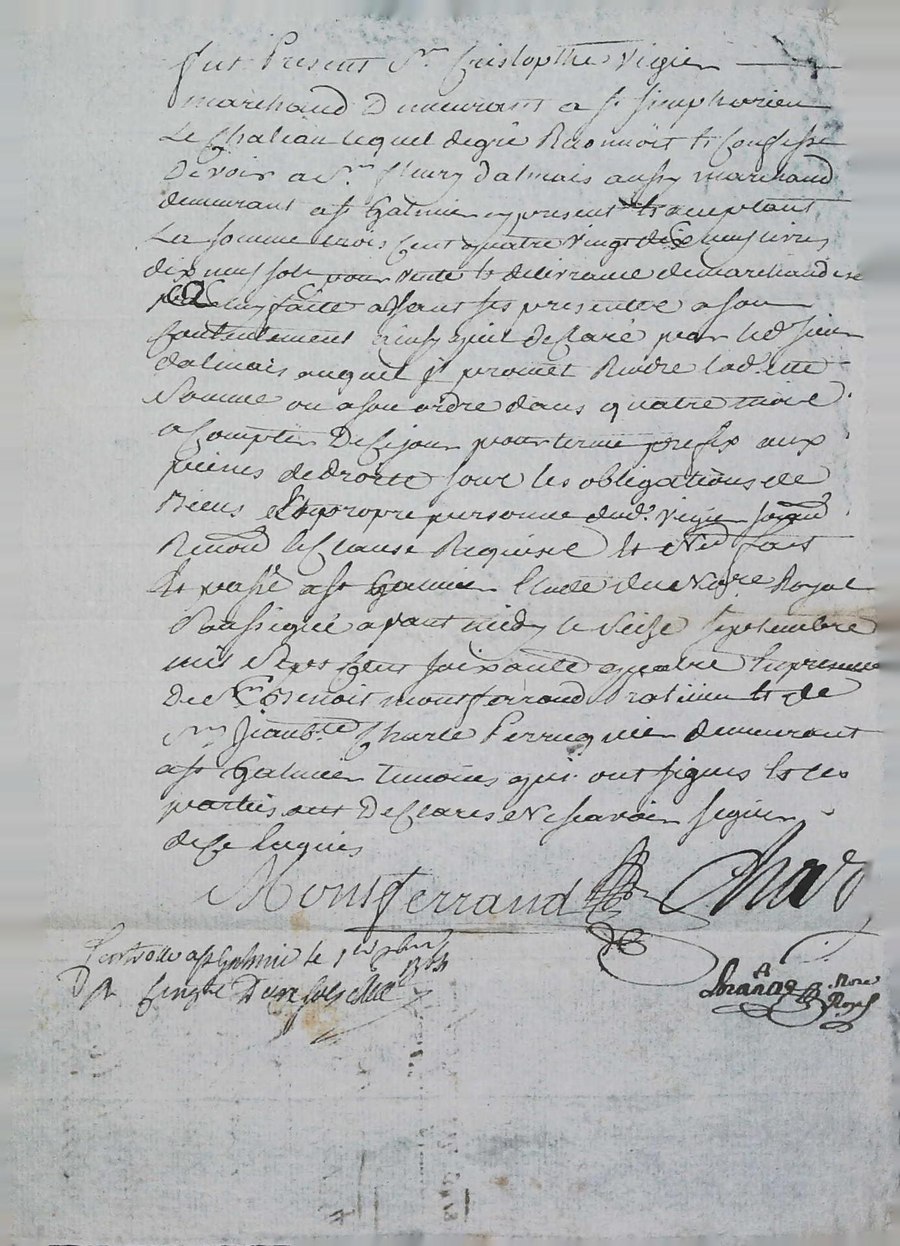 fut Present Sr Cristopthe Vigier
marchand Demeurant a st simphorien
Le Chateau lequel de gré Reconnoit et Confesse
Devoir a Sr fleury dalmais aussy marchand
demeurant a st Galmier cy present et aceptant
La somme trois Cent quatre vingt dix neuf livres
dix neuf sols pour vente et delivrance de marchandise
faitte avant ses presentte a son
Contentement ainsy quil declare par led sieur
dalmais auquel il promet Rendre lad. itte
Somme ou a son ordre dans quatre mois
a Compter De Ce jour pour terme prefix aux
peines de droits sous les obligations de
Biens et propre personne dud. Vigier
Renond Clause Requise et Ned fait
et passé a st Galmier Etude du No.re Royal
Soussigné avant midy le Seise Septembre
mil Sept Cent soixante quatre En presence
de Sr Benoit montferrand Praticien et de
Sr Jean b.te Charle Perruquier demeurant
a st Galmier temoins qui ont signes et les
parties ont Declares Ne scavoir signer
de Ce Enquis
Montferrand Char
Controlle a st Galmie le 7bre 1764
R Cinqte Deux sols
No.re
Royal